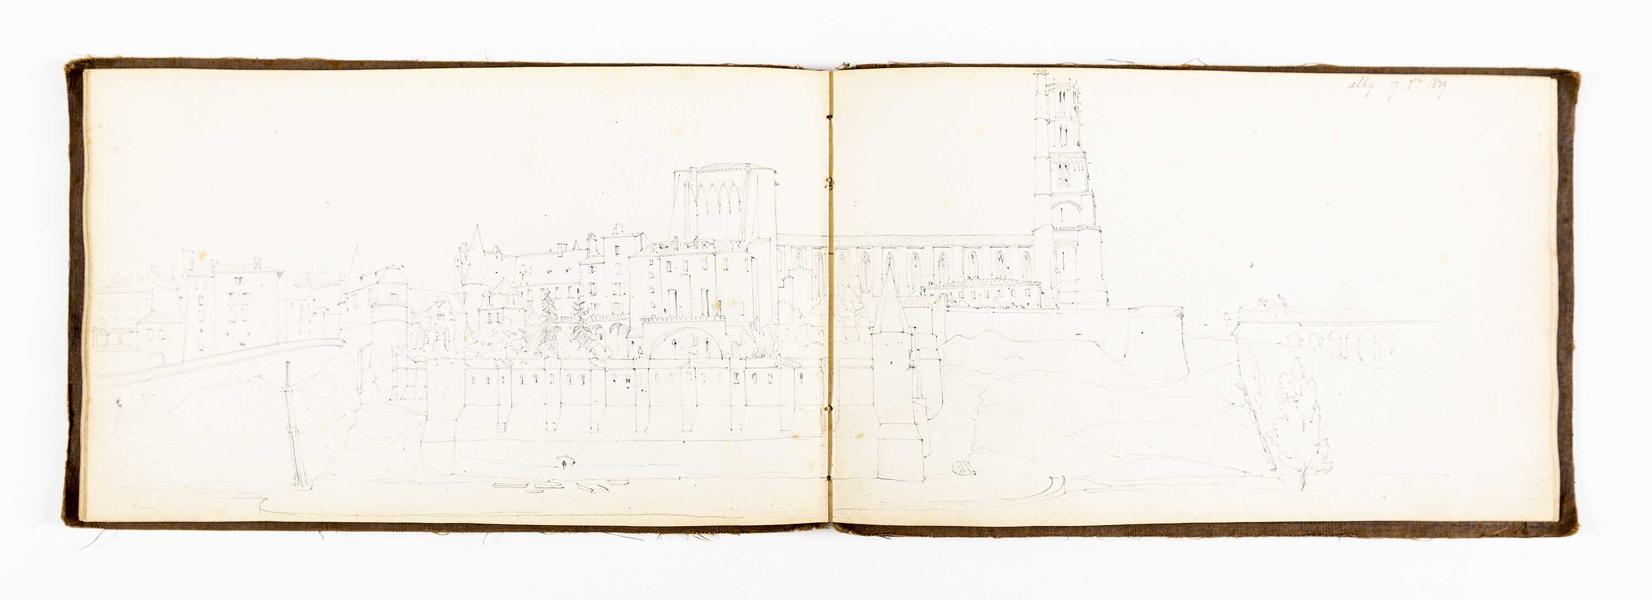 alby 17 8bre 1859